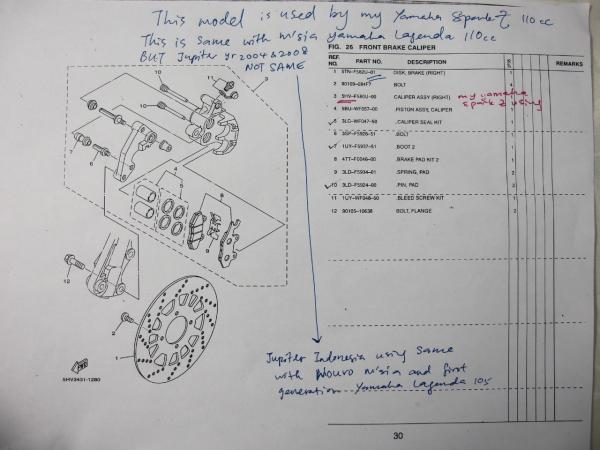 This model is used by my Yamaha Spark Z 110cc
This is same with m'sia yamaha Lagenda 110cc
BUT Jupiter yr 2004 & 2008
NOT SAME
FIG. 26 FRONT BRAKE CALIPER
REF. NO. PART NO. DESCRIPTION REMARKS
1 5TN-F582U-01 DISK, BRAKE (RIGHT) 1
2 90109-084F7 BOLT 4
3 5HV-F580U-00 CALIPER ASSY (RIGHT) 1
my yamaha
spark Z using
4 5BU-WF057-00 PISTON ASSY, CALIPER
5 3LC-WF047-50 .CALIPER SEAL KIT 1
6 3SP-F5926-51 .BOLT 1
7 1UY-F5937-51 .BOOT 2 1
8 4TT-F0046-00 .BRAKE PAD KIT 2 1
9 3LD-F5934-01 .SPRING, PAD 2
10 3LD-F5924-00 .PIN, PAD 2
11 1UY-WF048-50 .BLEED SCREW KIT 1
12 90105-10638 BOLT, FLANGE 2
3
11
10
10
7
8
6
4
5
9
8
12
2
1
FWD
5HV3431-1280
Jupiter Indonesia using same
with NOUVO m'sia and first
generation Yamaha Lagenda 105
30